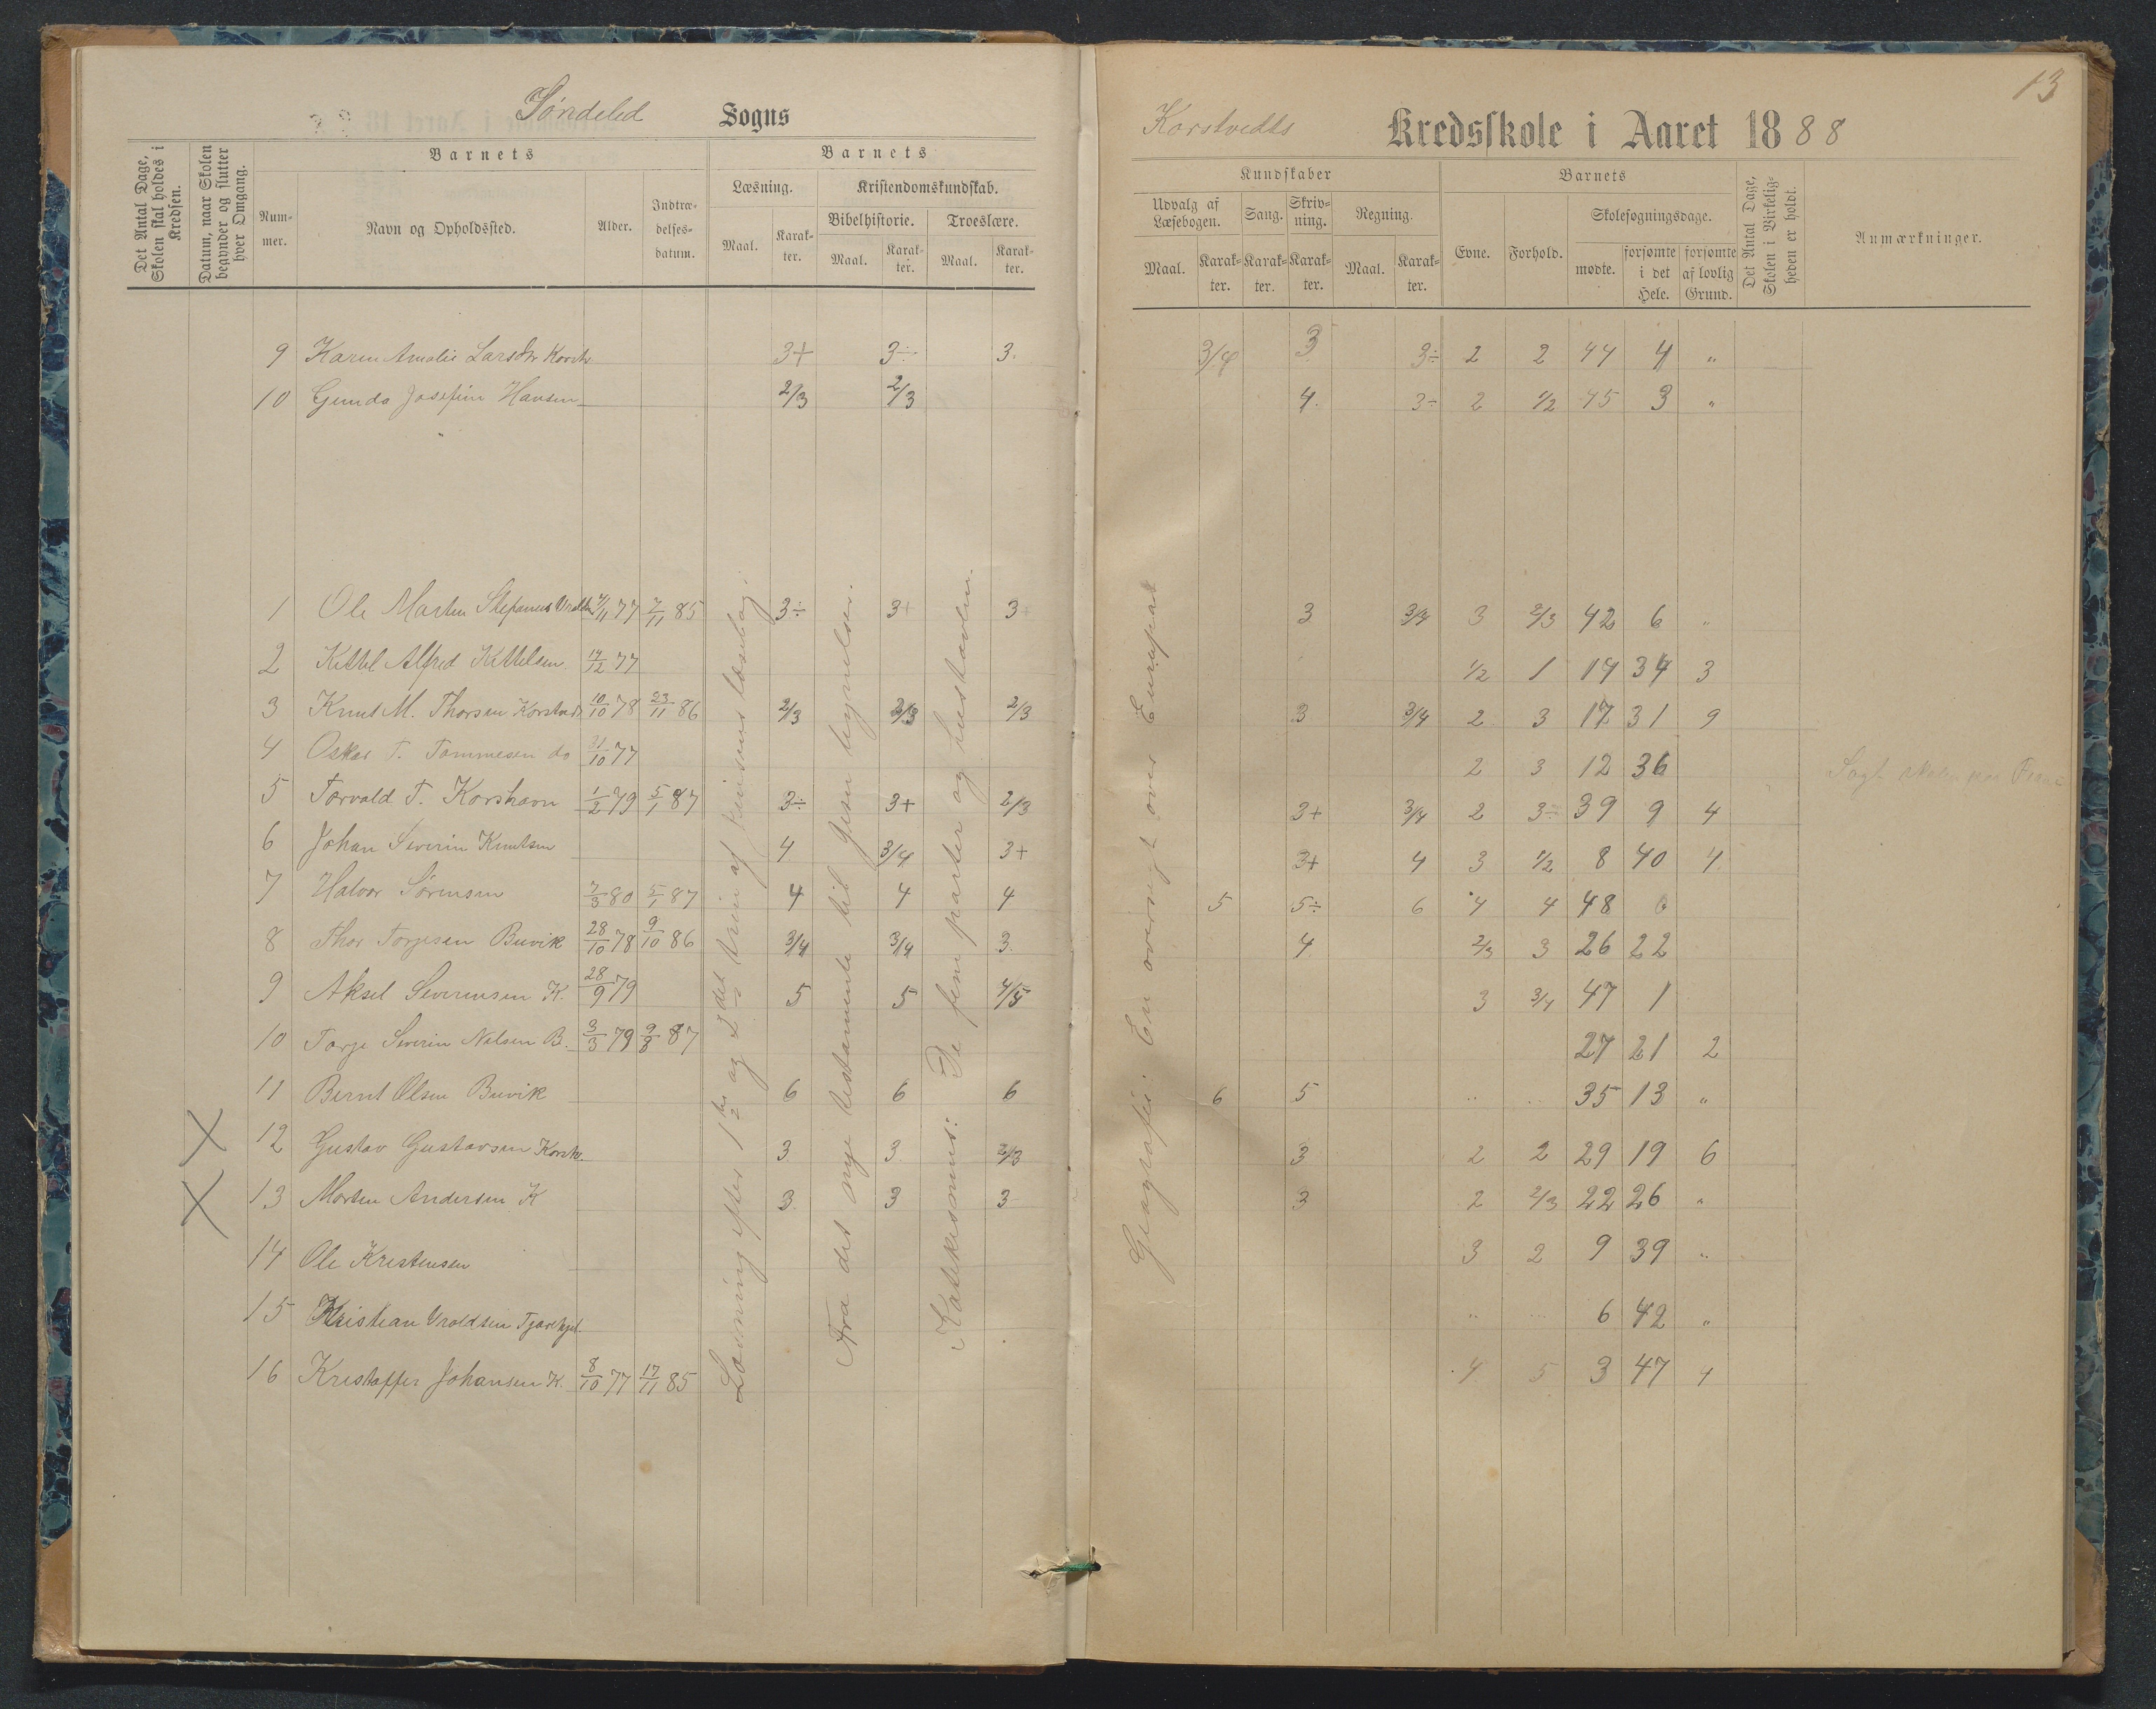 13
Søndeled Sogns
Korstvedts Kredsskole i Aaret 1888
Det Antal Dage, Skolen skal holdes i Kredsen.
Datum, naar Skolen begynder og slutter hver Omgang.
Barnets
Num-mer.
Navn og Opholdssted.
Alder.
Indtræ-delses-datum.
Barnets
Læsning.
Maal.
Karak-ter.
Kristendomskundskab.
Bibelhistorie.
Maal.
Karak-ter.
Troeslære.
Maal.
Karak-ter.
Kundskaber
Udvalg af Læsebogen.
Maal.
Karak-ter.
Sang.
Karak-ter.
Skriv-ning.
Karak-ter.
Regning.
Maal.
Karak-ter.
Barnets
Evne.
Forhold.
Skolesøgningsdage.
mødte.
forsømte i det Hele.
forsømte af lovlig Grund.
Det Antal Dage, Skolen i Virkelig-heden er holdt.
Anmærkninger.
9 Karen Amalie Larsdtr Korstv 3+ 3÷ 3. 3/4 3 3÷ 2 2 44 4 "
10 Gunda Josefine Hansen 2/3 2/3 4. 3÷ 2 1/2 45 3 "
1 Ole Marten Stefanus 77 7/11 85 3÷ 3+ 3+ 3 3/4 3 2/3 42 6 "
2 Kittel Alfred Kittelsen 14/12 77 1/2 1 14 34 3
3 Knut M. Thorsen Korstvedt 10/10 78 23/11 86 2/3 2/3 2/3 3 3/4 2 3 17 31 9
4 Oskar T. Tommesen do 31/10 77 2 3 12 36 Søgt
5 Torvald T. Korshavn 1/2 79 5/1 87 3÷ 3+ 2/3 3+ 3/4 2 3÷ 39 9 4
6 Johan Severin Knutsen 4 3/4 3+ 3+ 4 3 1/2 8 40 4
7 Halvor Sørensen 7/3 80 5/1 87 4 4 4 5 5÷ 6 4 4 48 0
8 Thor Torjesen Buvik 28/10 78 9/10 86 3/4 3/4 3. 4 2/3 3 26 22
9 Aksel Severinsen K. 28/9 79 5 5 4/5 3 3/4 47 1
10 Torje Severin Nilsen B. 3/3 79 9/8 87 27 21 2
11 Bernt Olsen Buvik 6 6 6 6 5 " " 35 13 "
12 Gustav Gustavsen Korstv. 3 3 2/3 3 2 2 29 19 6
13 Morten Andersen K 3 3 3 3 2 2/3 22 26 "
14 Ole Kristensen 3 2 9 39 "
15 Kristian Vroldsen " " 6 42 "
16 Kristoffer Johansen K. 8/10 77 17/11 85 4 5 3 47 4
Læsning efter 1ste og 2det trin af Jensens læsebog.
Fra det nye testamente til Jesu lignelser.
Katekismus: De fem parter og hustavlen.
Geografi: En oversigt over Europas